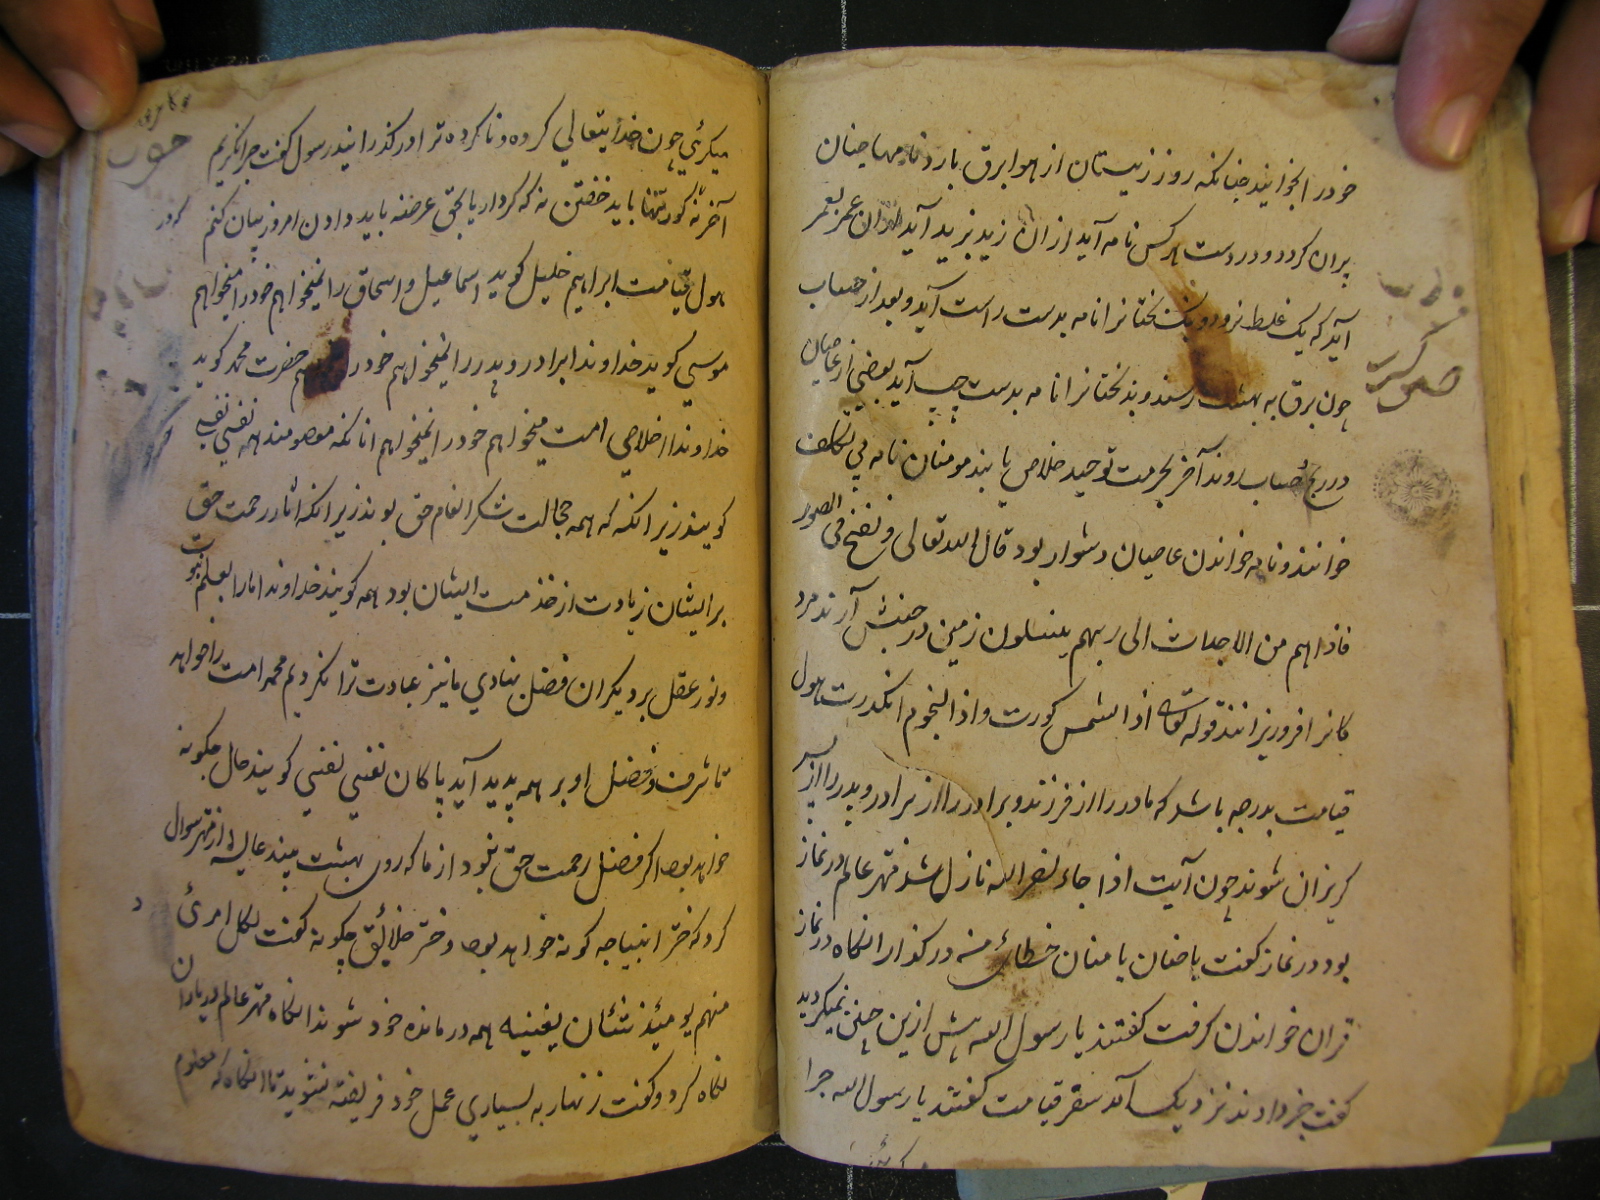 خود را بخوانید چنانکه روز زیستان از هوا برق بارد نامها چنان
پران کردد و در دست هر کس نامه آید از ان زید بزید آید از ان عمر بعمر
آید که یک غلط نرود و نیک بختانرا نامه بدست راست آید و بعد از حساب
چون برق به بهشت رسند و بدبختانرا نامه بدست چپ آید بعضی از عاصیان
در رنج حساب روند آخر بحرمت توحید خلاص یابند مومنان نامه بی تکلف
خوانند و نامه خواندن عاصیان دشوار بود قال الله تعالی و نفخ فی الصور
فاذا هم من الاجداث الی ربهم ینسلون زمین در جنبش آرند مرد
کانرا فرو ریزانند قوله تعالی اذا الشمس کورت و اذا النجوم انکدرت هول
قیامت بدرجه باشد که مادر را از فرزند و برادر را از برادر و پدر را از پسر
کریزان شوند چون آیت اذا جاء نصر الله نازل شد مهتر عالم در نماز
بود در نماز کفت یا حنان یا منان خطائی منه در کذار انکاه در نماز
قران خواندن کرفت کفتند یا رسول الله پیش ازین چنین نمیکردید
کفت خبر دادند نزدیک آمد سفر قیامت کفتند یا رسول الله چرا
میکرئی چون خدایتعالی کرده و ناکرده ترا در کذرانید رسول کفت چرا نکریم
آخر نه کور تنها باید خفتن نه که کردار با بحق عرضه باید دادن امروز بیان کنم
هول قیامت ابراهیم خلیل کوید اسماعیل و اسحاق را نمیخواهم خود را میخواهم
موسی کوید خداوندا برادر و پدر را نمیخواهم خود را حضرت محمد کوید
خداوندا خلاصی امت میخواهم خود را نمیخواهم انانکه معصومند همه نفسی نفسی
کویند زیرا نکه که همه خجالت شکر انعام حق بوند زیرا نکه اثار رحمت حق
بر ایشان زیادت از خدمت ایشان بود همه کویند خداوندا ما را بعلم نبوت
و نور عقل بر دیکران فضل نهادی ما نیز عبادت ترا نکردیم محمد امت را خواهد
تا شرف و فضل او بر همه پدید آید پاکان نفسی نفسی کویند حال چکونه
خواهد بود اکر فضل رحمت حق نبود از ما که روی بهشت بیند عایشه از مهتر سوال
کرد که حشر انبیا چه کونه خواهد بود و حشر خلائق چکونه کفت لکل امرئ
منهم یومئذ شان یغنیه همه در مانده خود شوند انکاه مهتر عالم در یاران
نکاه کرد و کفت زنهار به بسیاری عمل خود فریفته نشوید تا انکاه که معلوم